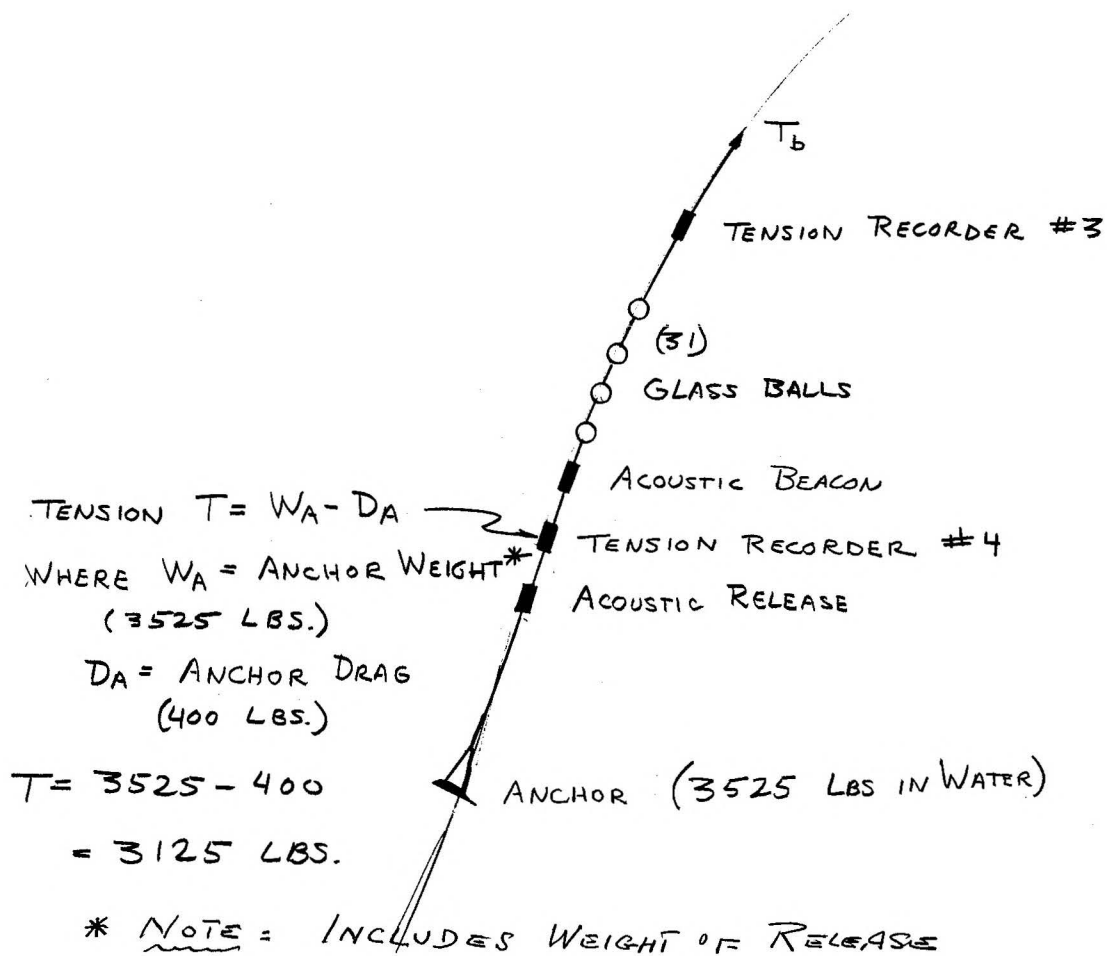 T_b
TENSION RECORDER #3
(31)
GLASS BALLS
ACOUSTIC BEACON
TENSION T = W_A - D_A
TENSION RECORDER #4
WHERE W_A = ANCHOR WEIGHT*
(3525 LBS.)
ACOUSTIC RELEASE
D_A = ANCHOR DRAG
(400 LBS.)
T = 3525 - 400
ANCHOR (3525 LBS IN WATER)
= 3125 LBS.
* NOTE = INCLUDES WEIGHT OF RELEASE